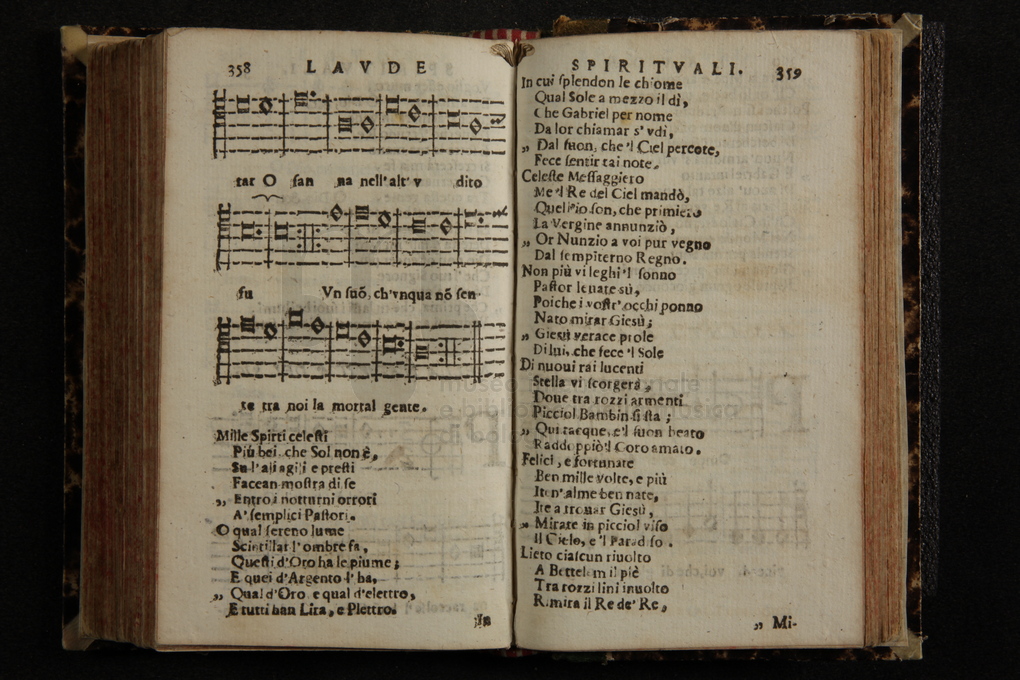 358 LAVDE
tar O san na nell'alt' v dito
fu Vn suõ, ch'vnqua nõ sen-
te tra noi la mortal gente.
Mille Spirti celesti
Più bei, che Sol non è,
Su l'ali agili e presti
Facean mostra di se
„ Entro i notturni orrori
A' semplici Pastori.
O qual sereno lume
Scintillar l'ombre fa,
Questi d'Oro ha le piume;
E quei d'Argento l'ha,
„ Qual d'Oro e qual d'elettro,
E tutti han Lira, e Plettro.
In
SPIRITVALI. 359
In cui splendon le chiome
Qual Sole a mezzo il dì,
Che Gabriel per nome
Da lor chiamar s'vdì,
„ Dal suon, che 'l Ciel percote,
Fece sentir tai note.
Celeste Messaggiero
Me 'l Re del Ciel mandò,
Quell'io son, che primiero
La Vergine annunziò,
„ Or Nunzio a voi pur vegno
Dal sempiterno Regno.
Non più vi leghi 'l sonno
Pastor leuate sù,
Poiche i vostr'occhi ponno
Nato mirar Giesù;
„ Giesù verace prole
Di lui, che fece 'l Sole
Di nuoui rai lucenti
Stella vi scorgerà,
Doue tra rozzi armenti
Picciol Bambin si sta;
„ Qui tacque, e 'l suon beato
Raddoppiò 'l Coro amato.
Felici, e fortunate
Ben mille volte, e più
Iten'alme ben nate,
Ite a trouar Giesù,
„ Mirate in picciol viso
Il Cielo, e 'l Paradiso.
Lieto ciascun riuolto
A Bettelem il piè
Tra rozzi lini inuolto
Rimira il Re de' Re,
„ Mi-